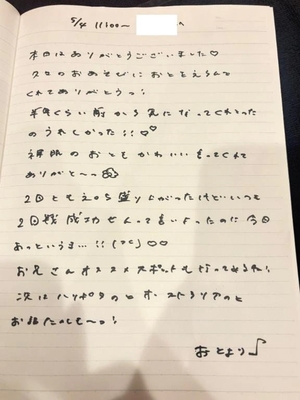 5/4 11:00〜 へ
本日はありがとうございました♡
久々のおあそびにおとをえらんで
くれてありがとうっ!
半年くらい前から気になってくれてたの
うれしかった!!♡♡
裸眼のおともかわいい言ってくれて
ありがと〜っ
2回ともえっち盛り上がったけどいつも
2回戦成功せんって言いよったのに今日
あっというま…!!
お兄さんオススメスポットも行ってみるね!
次はハリポタのとオーストラリアのと
お話たのしも〜っ!
おとより♪